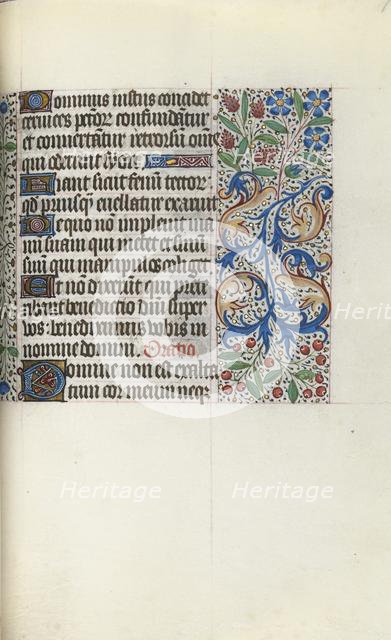 Dominus iustus concidet
cervices pctor̄ confundātur
et convertātur retrorsū om̄s
qui oderunt syon.
Fiant sicut fenū tector̄
qd priusq̄ evellatur exaruit
De quo nō implevit ma
nū suam qui metet et sinū
suū qui manipulos colliget
Et nō dixerūt qui prete
ribant benedictio dn̄i super
vos: benediximus vobis in
nomine domini. Oratio
Domine non est exalta
tum cor meum neq̄
Heritage
Heritage
Heritage
Heritage